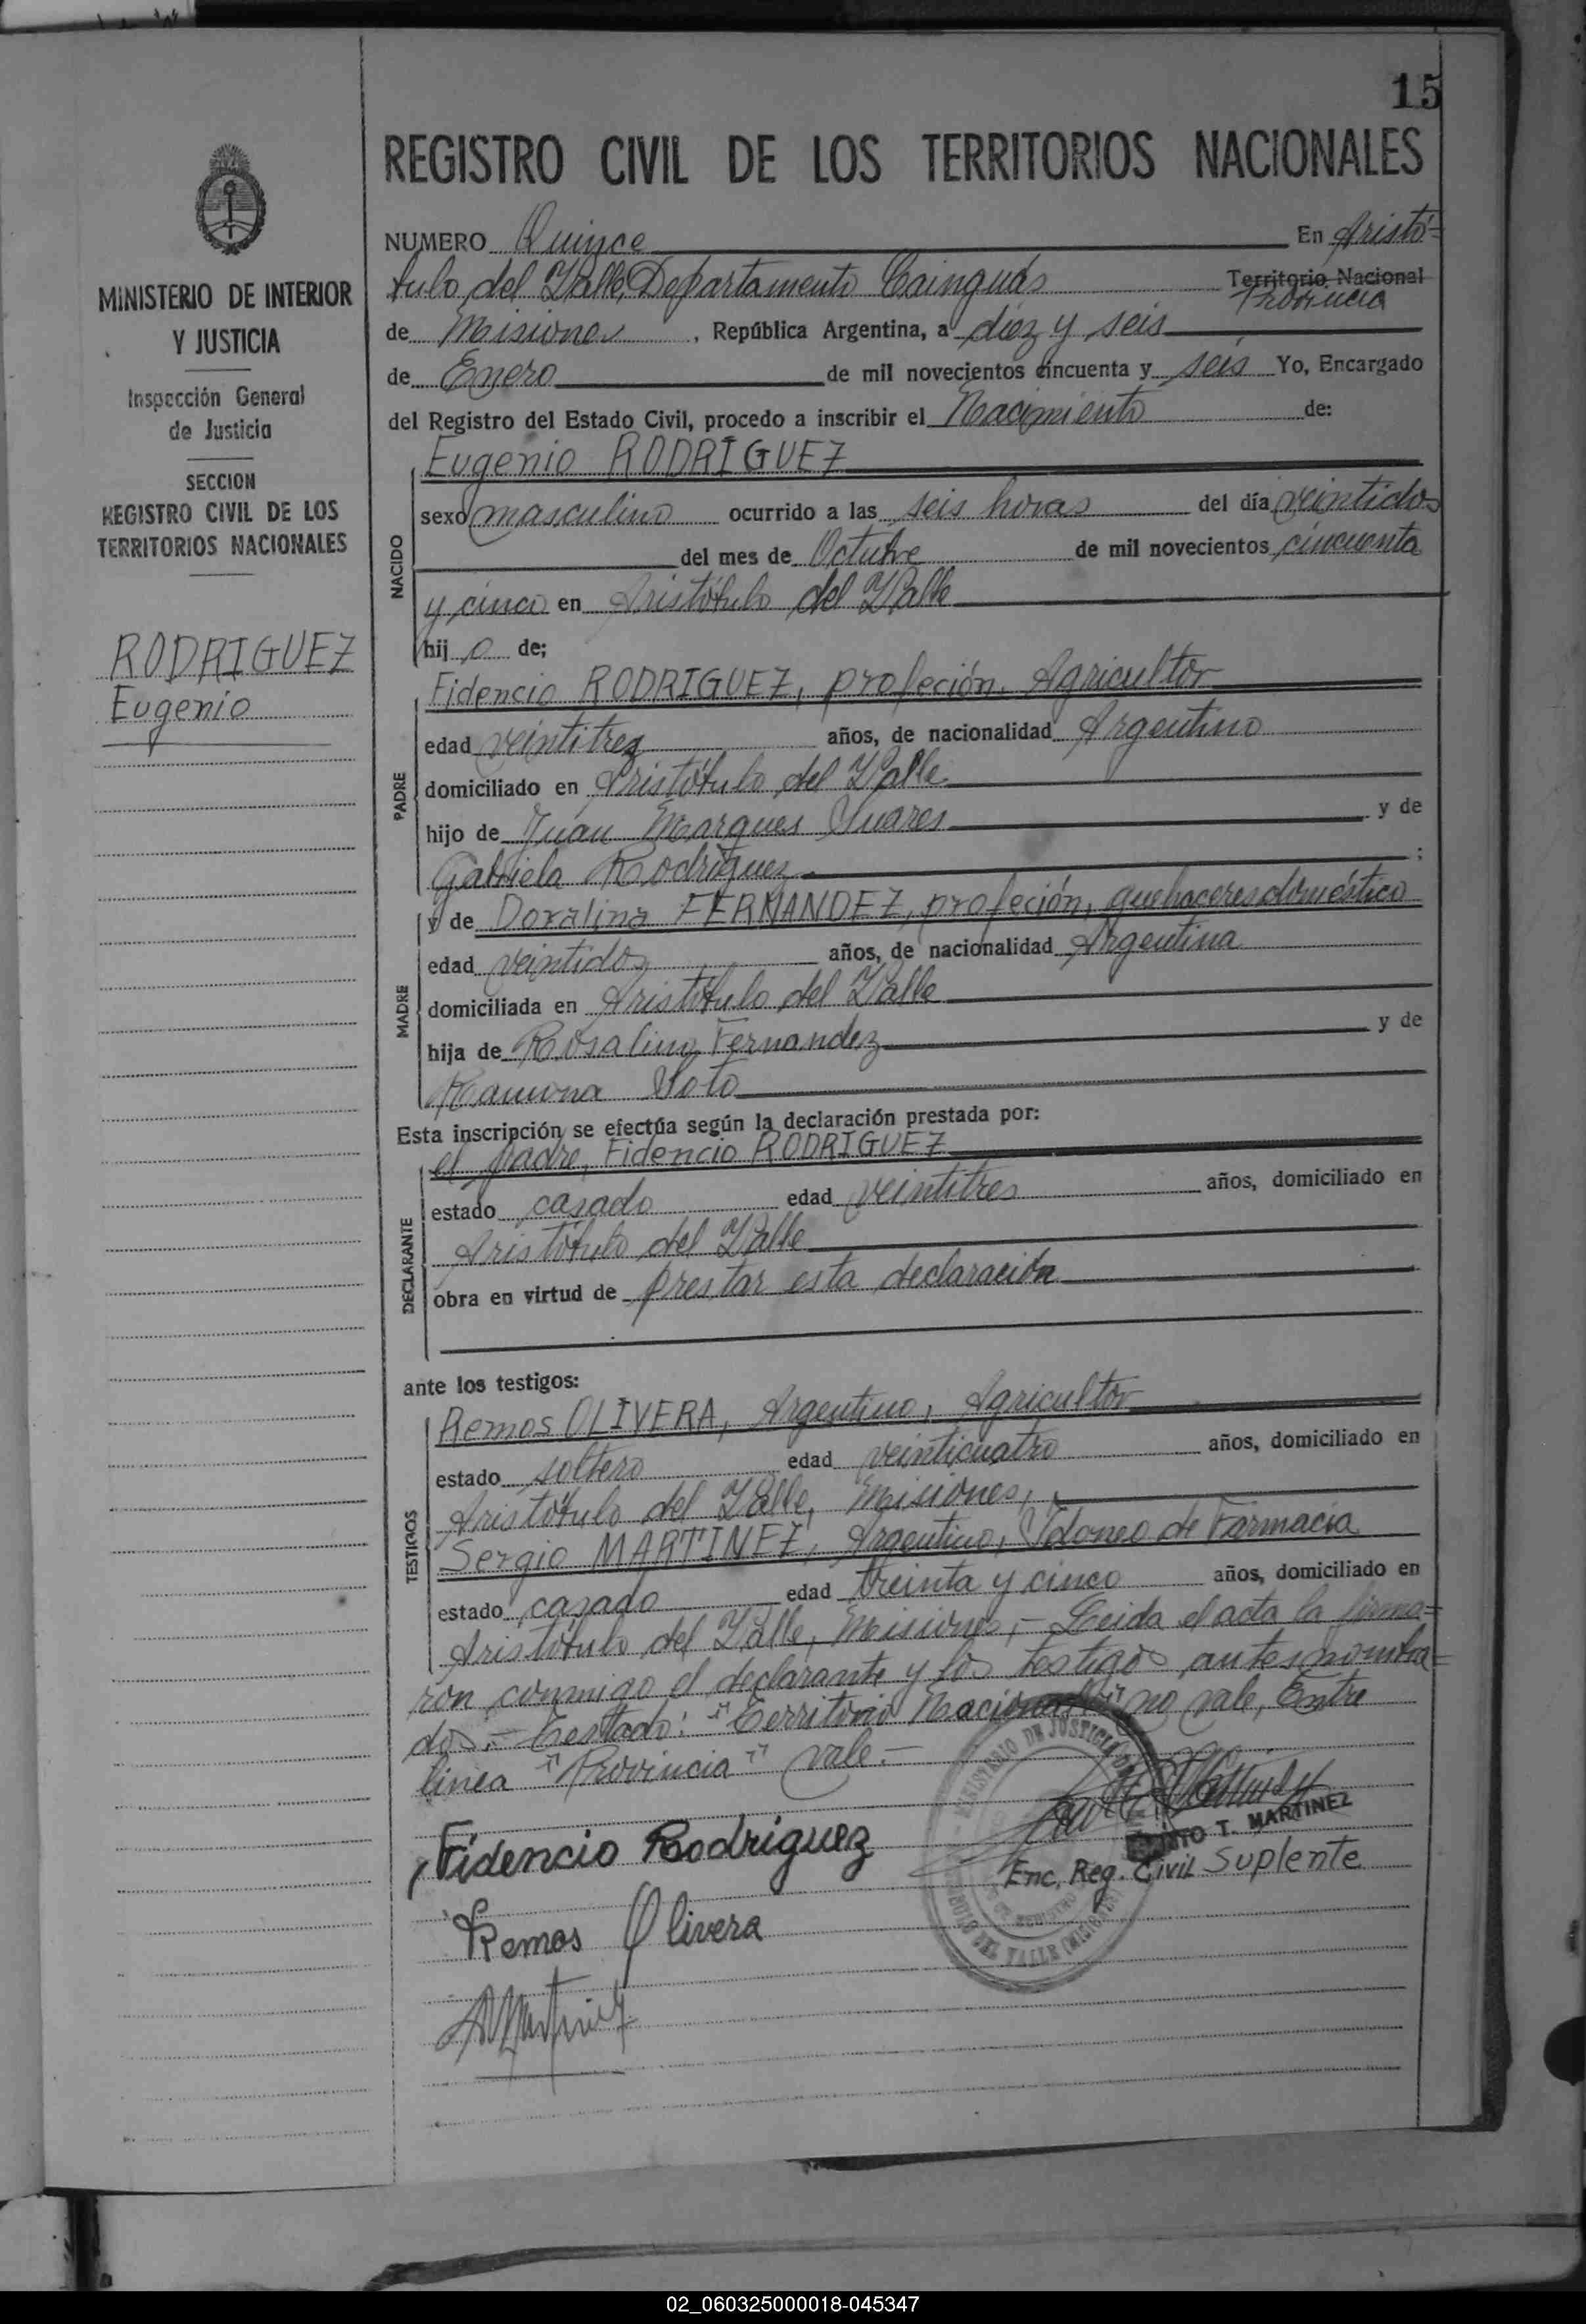 15
REGISTRO CIVIL DE LOS TERRITORIOS NACIONALES
MINISTERIO DE INTERIOR
Y JUSTICIA
Inspección General
de Justicia
SECCION
REGISTRO CIVIL DE LOS
TERRITORIOS NACIONALES
RODRIGUEZ
Eugenio
NUMERO Quince En Aristó=
tulo del Valle, Departamento Cainguás Territorio Nacional
Provincia
de Misiones, República Argentina, a diez y seis
de Enero de mil novecientos cincuenta y seis Yo, Encargado
del Registro del Estado Civil, procedo a inscribir el Nacimiento de:
NACIDO
Eugenio RODRIGUEZ
sexo masculino ocurrido a las seis horas del día veintidos
del mes de Octubre de mil novecientos cincuenta
y cinco en Aristótulo del Valle
hij o de;
PADRE
Fidencio RODRIGUEZ, profeción, Agricultor
edad veintitres años, de nacionalidad Argentino
domiciliado en Aristótulo del Valle
hijo de Juan Marques Suares y de
Gabriela Rodriguez ;
MADRE
y de Doralina FERNANDEZ, profeción, quehaceres doméstico
edad veintidos años, de nacionalidad Argentina
domiciliada en Aristótulo del Valle
hija de Rosalino Fernandez y de
Ramona Soto
Esta inscripción se efectúa según la declaración prestada por:
DECLARANTE
el padre, Fidencio RODRIGUEZ
estado casado edad veintitres años, domiciliado en
Aristótulo del Valle
obra en virtud de prestar esta declaración
ante los testigos:
TESTIGOS
Remos OLIVERA, Argentino, Agricultor
estado soltero edad veinticuatro años, domiciliado en
Aristótulo del Valle, Misiones,
Sergio MARTINEZ, Argentino, Idoneo de Farmacia
estado casado edad treinta y cinco años, domiciliado en
Aristótulo del Valle, Misiones, - Leida el acta la firma=
ron conmigo el declarante y los testigos antes nombra=
dos. - Testado: "Territorio Nacional" no vale, Entre
linea "Provincia" vale. -
Fidencio Rodriguez
T. MARTINEZ
Enc. Reg. Civil Suplente
Remos Olivera
02_060325000018-045347